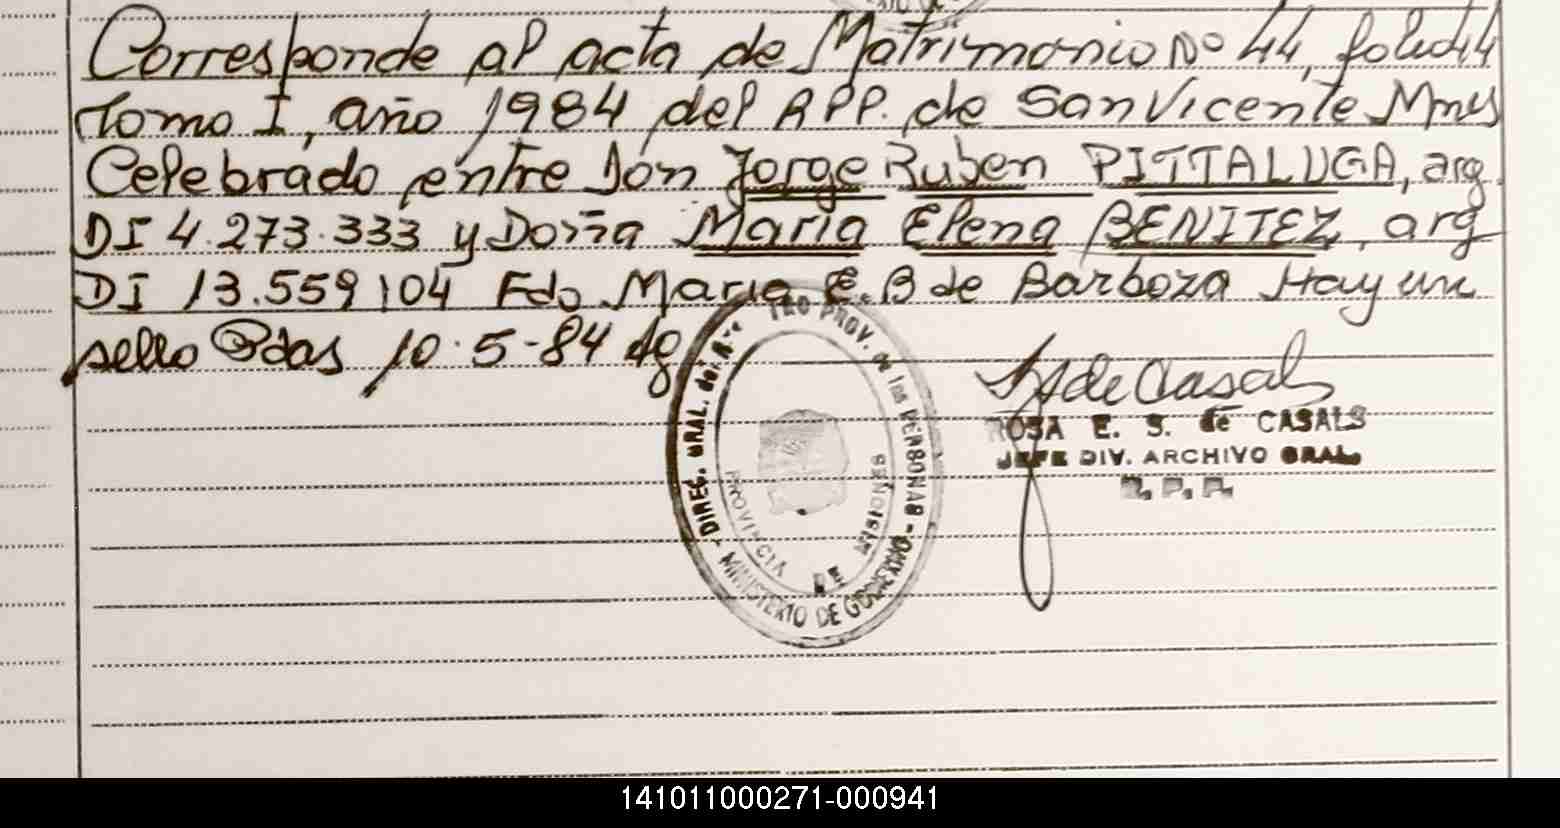 Corresponde al acta de Matrimonio Nº 44, folio 44
Tomo I, año 1984 del RPP. de San Vicente Mnes
Celebrado entre Don Jorge Ruben PITTALUGA, arg.
DI 4.273.333 y Doña Maria Elena BENITEZ, arg
DI 13.559104 Fdo Maria E. B de Barboza Hay un
sello Pdas 10-5-84
DIREC. GRAL. del PROV. de las PERSONAS - MINISTERIO DE GOBIERNO -
PROVINCIA DE MISIONES
de Casals
ROSA E. S. de CASALS
JEFE DIV. ARCHIVO GRAL.
R. P. P.
141011000271-000941